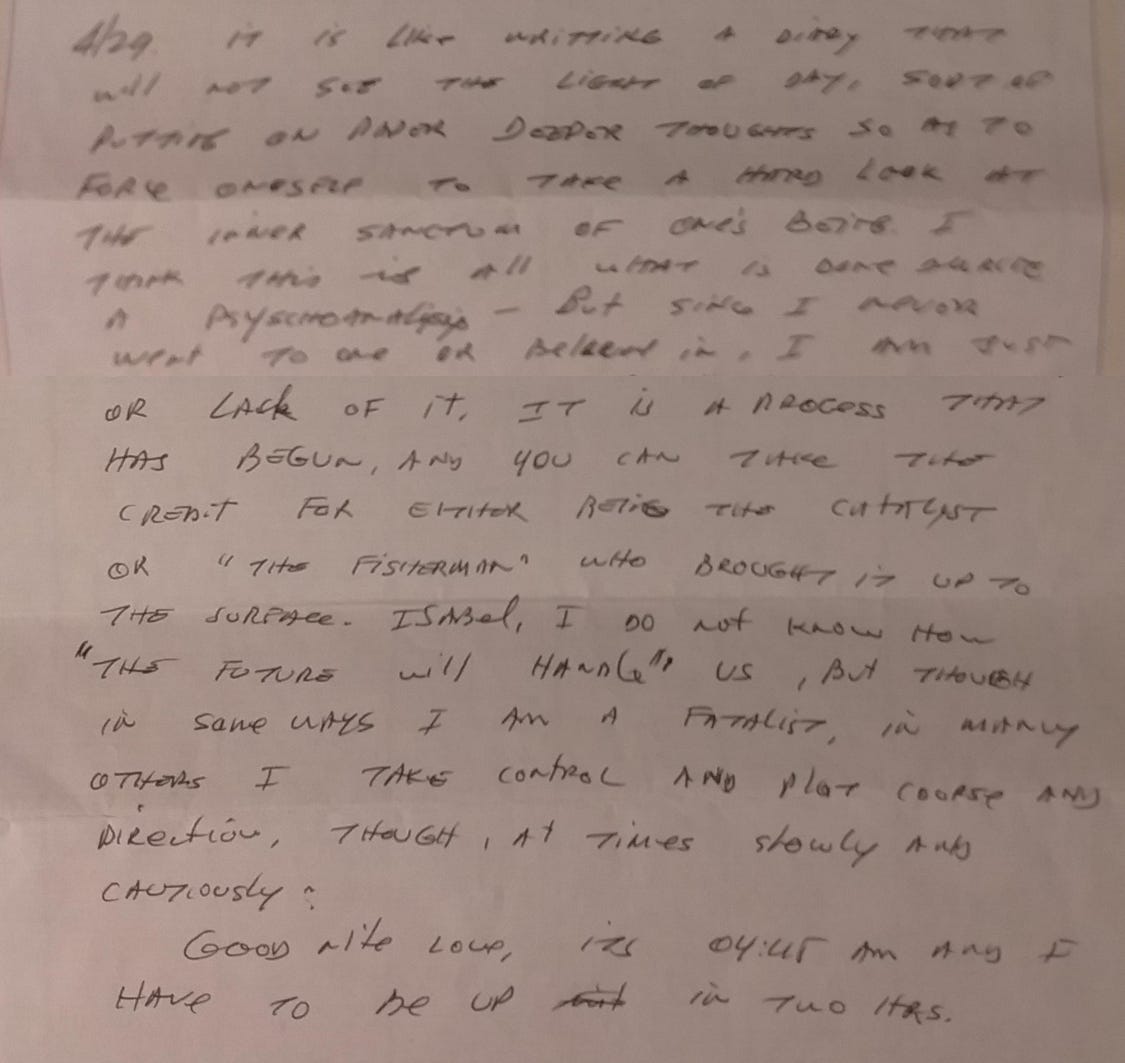 4/29. it is like writting A Diary THAT
will not see THE LIGHT OF DAY, SORT OF
PUTTING ON PAPER DEEPER THOUGHTS SO AS TO
FORCE ONESELF TO TAKE A HARD LOOK AT
THE inner SANCTUM OF ONE'S BEING. I
THINK THIS is All WHAT is DONE
A PSYSCHOANALYSIS - But since I NEVER
went TO one OR Believe in, I AM JUST
OR LACK OF it. IT is A PROCESS THAT
HAS BEGUN, AND YOU CAN TAKE THE
CREDIT FOR EITHER BEING THE CATALYST
OR "THE FISHERMAN" WHO BROUGHT it UP TO
THE SURFACE. ISABEL, I DO NOT KNOW HOW
"THE FUTURE will HANDLE" US, BUT THOUGH
in some WAYS I AM A FATALIST, in MANY
OTHERS I TAKE CONTROL AND PLOT COURSE AND
DIRECTION, THOUGH, AT TIMES slowly AND
CAUTIOUSLY.
GOOD NITE LOVE, ITS 04:45 AM AND I
HAVE TO BE UP in TWO HRS.